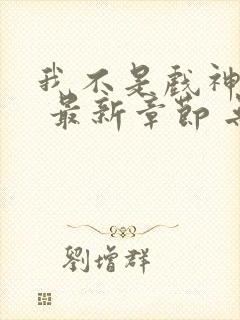 我不是戏神
最新章节
劉增群